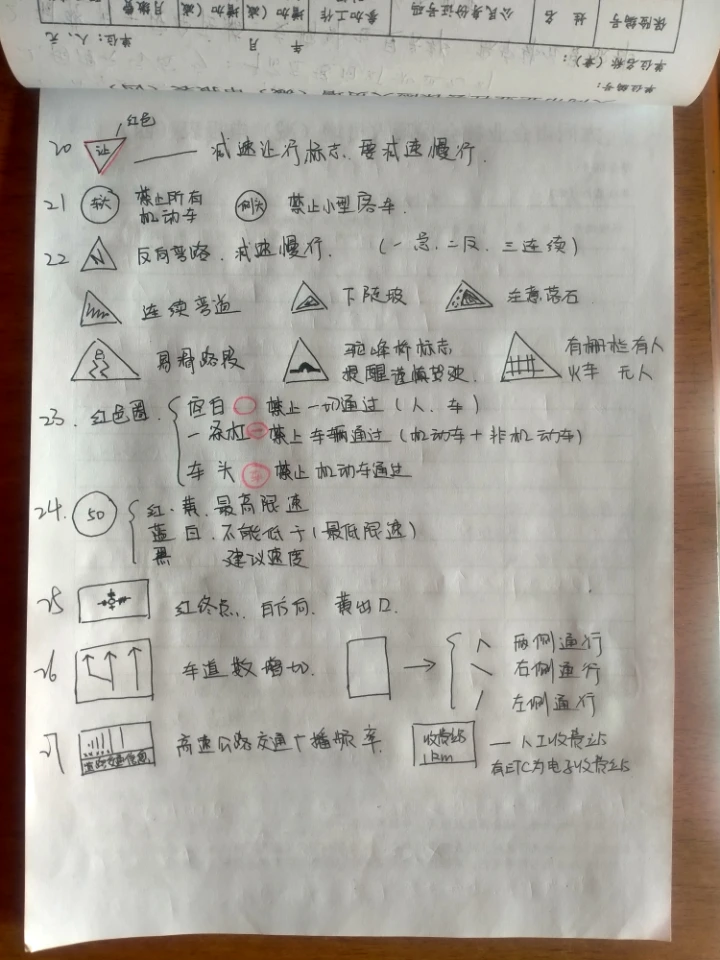 保险编号 姓名 公民身份证号码 参加工作 增加(减 增加(减 月缴费
单位名称(章): 年 月 单位:人、元
单位编号:
红色
20 让 —— 减速让行标志、要减速慢行.
21 车头 禁止所有机动车 侧头 禁止小型客车.
22 反向弯路.减速慢行. (一急.二反.三连续)
连续弯道 下陡坡 注意落石
易滑路段 驼峰桥标志 提醒谨慎驾驶. 有栅栏有人 火车 无人
23. 红色圈. 空白 禁止一切通过(人、车)
一条杠 禁止车辆通过(机动车+非机动车)
车头 禁止机动车通过
24. 50 红.黄.最高限速
蓝 白.不能低于(最低限速)
黑 建议速度
25 红终点、白方向.黄出口.
26 车道数增加. → 八 两侧通行
右侧通行
左侧通行
27 道路交通信息 高速公路交通广播频率. 收费站 1km — 人工收费站
有ETC为电子收费站